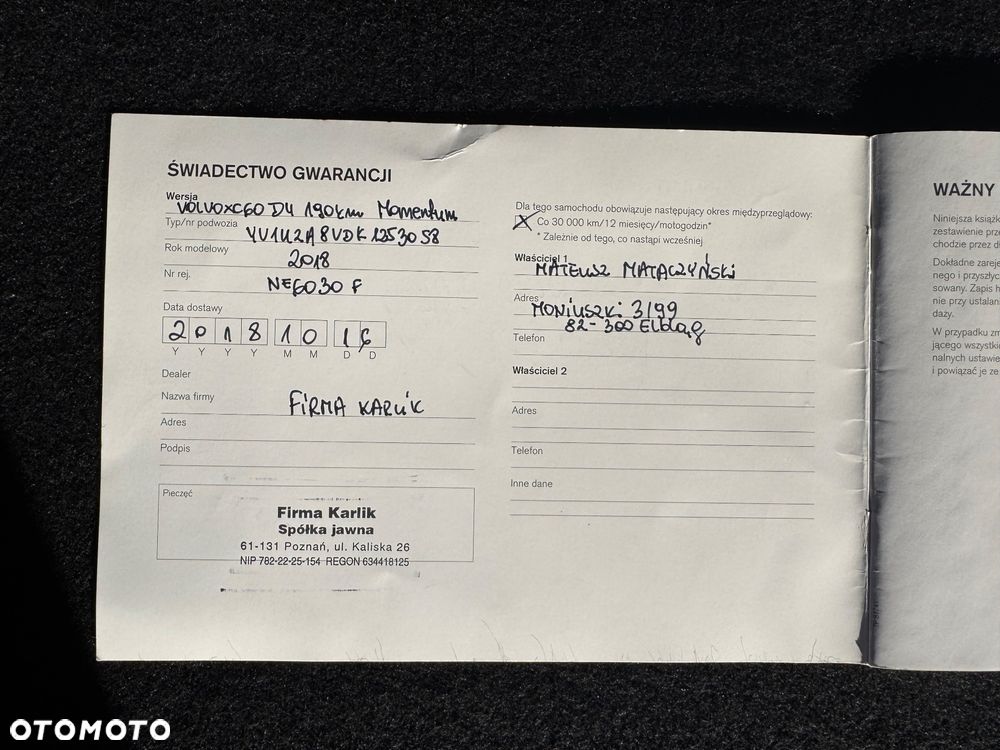 ŚWIADECTWO GWARANCJI
Wersja
VOLVO XC60 D4 190km Momentum
Typ/nr podwozia
YV1UZA8VDK1253058
Rok modelowy
2018
Nr rej.
NE6030F
Data dostawy
2018 10 16
Y Y Y Y M M D D
Dealer
Nazwa firmy
FIRMA KARLIK
Adres
Podpis
Pieczęć
Firma Karlik
Spółka jawna
61-131 Poznań, ul. Kaliska 26
NIP 782-22-25-154 REGON 634418125
Dla tego samochodu obowiązuje następujący okres międzyprzeglądowy:
X Co 30 000 km/12 miesięcy/motogodzin*
* Zależnie od tego, co nastąpi wcześniej
Właściciel 1
MATEUSZ MATACZYŃSKI
Adres
MONIUSZKI 3/99
82-300 Elbląg
Telefon
Właściciel 2
Adres
Telefon
Inne dane
WAŻNY
Niniejsza książk
zestawienie prze
chodzie przez d
Dokładne zareje
nego i przyszłyc
sowany. Zapis h
nie przy ustalan
daży.
W przypadku zm
jącego wszystki
nalnych ustawie
i powiązać je ze
OTOMOTO